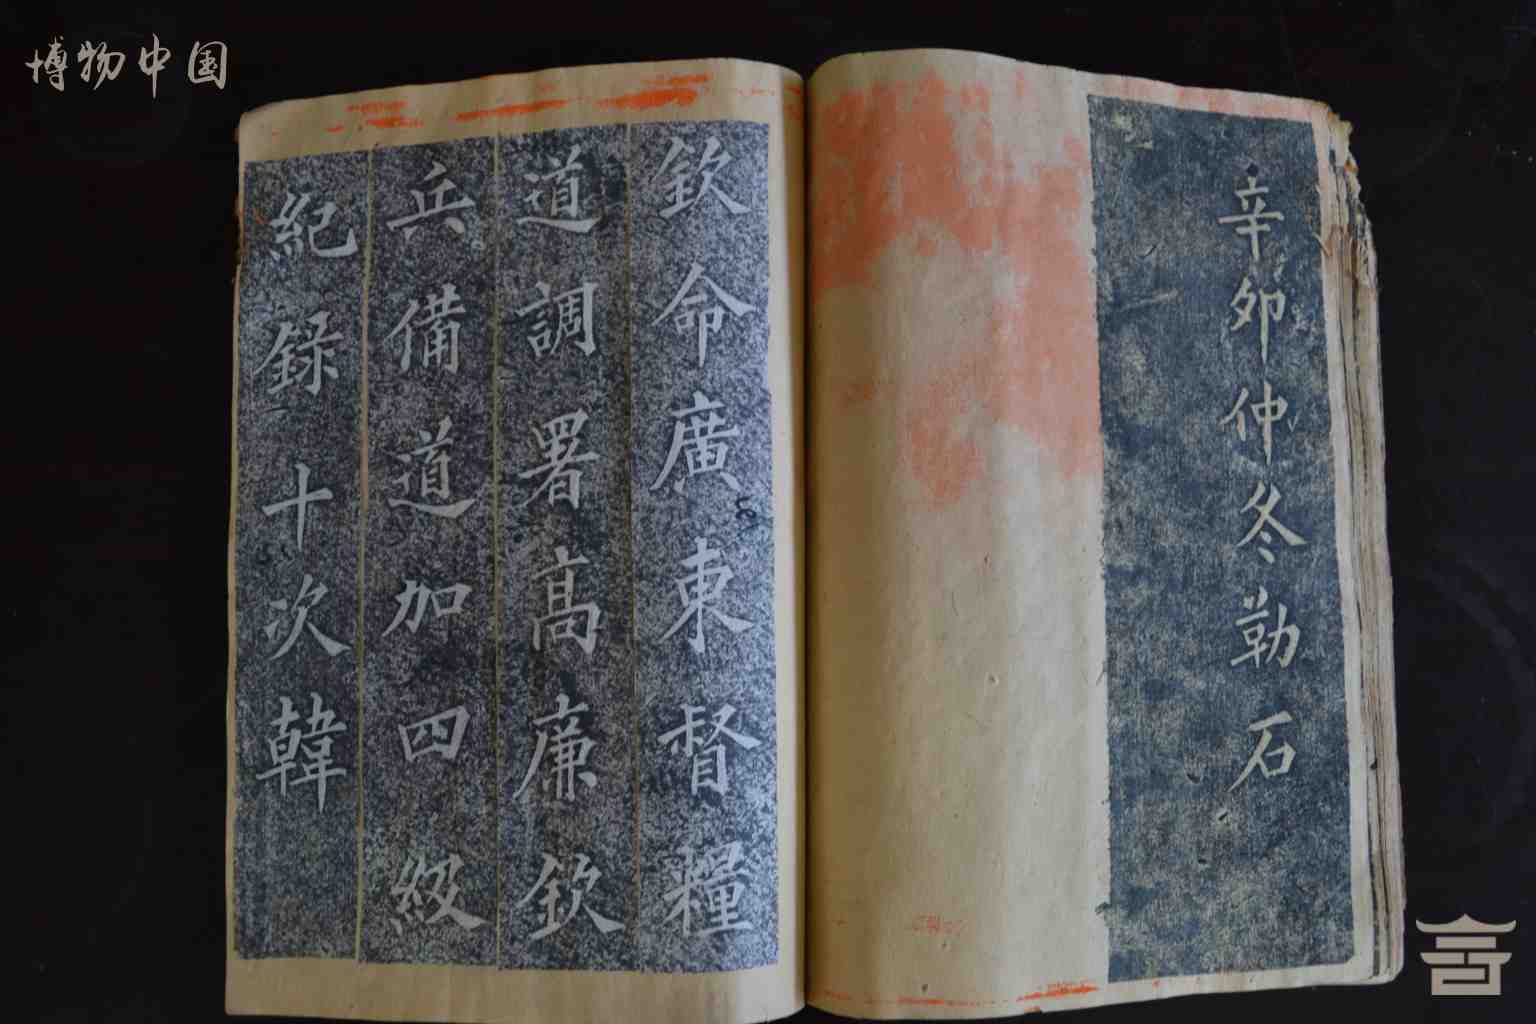 博物中国
辛卯仲冬勒石
欽命廣東督糧
道調署高廉欽
兵備道加四級
紀錄十次韓